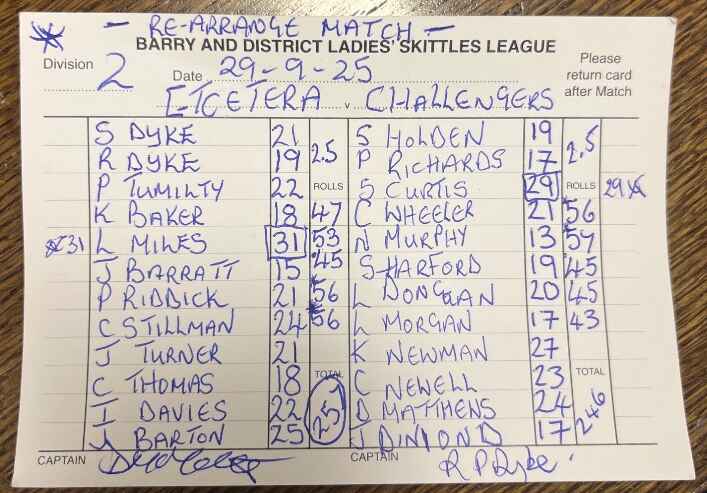 - RE-ARRANGE MATCH -
BARRY AND DISTRICT LADIES' SKITTLES LEAGUE
Division 2 Date 29-9-25 Please
return card
after Match
ETCETERA v CHALLENGERS
S DYKE 21 S HOLDEN 19
R DYKE 19 2.5 P RICHARDS 17 2.5
P TUMILTY 22 ROLLS S CURTIS 29 ROLLS 29
K BAKER 18 47 C WHEELER 21 56
31 L MILES 31 53 N MURPHY 13 57
J BARRATT 15 45 S HARFORD 19 45
P RIDDICK 21 56 L DONEGAN 20 45
C STILLMAN 24 56 L MORGAN 17 43
J TURNER 21 K NEWMAN 27
C THOMAS 18 TOTAL C NEWELL 23 TOTAL
I DAVIES 22 257 D MATTHENS 24 246
J BARTON 25 J DIMOND 17
CAPTAIN CAPTAIN R P Dyke